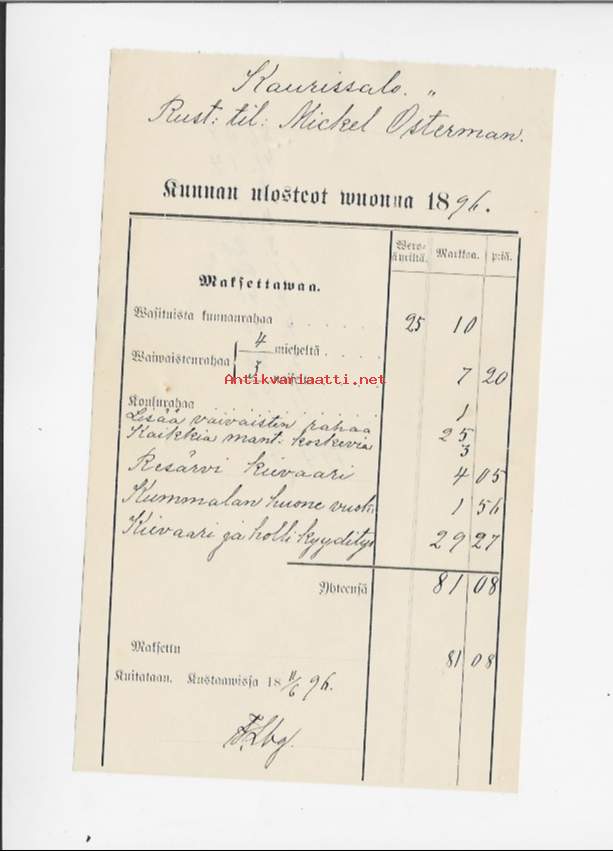 Kaurissalo. „
Rust: til: Mickel Osterman.
Kunnan ulosteot wuonna 1896.
Wero-äyriltä. Markkaa. p:iä.
Maksettawaa.
Wasituista kunnanrahaa . . . . 25 10
Waiwaistenrahaa { 4 mieheltä . . . .
3 7 20
Antikvariaatti.net
Koulurahaa . . . . 1
Lisää vaivaisten rahaa 25
Kaikkia mant: koskevia 3
Resärvi kievaari 4 05
Kummalan huone vuok: 1 56
Kievaari ja holli kyyditys 29 27
Yhteensä 81 08
Maksettu 81 08
Kuitataan. Kustawissa 18 11/6 96.